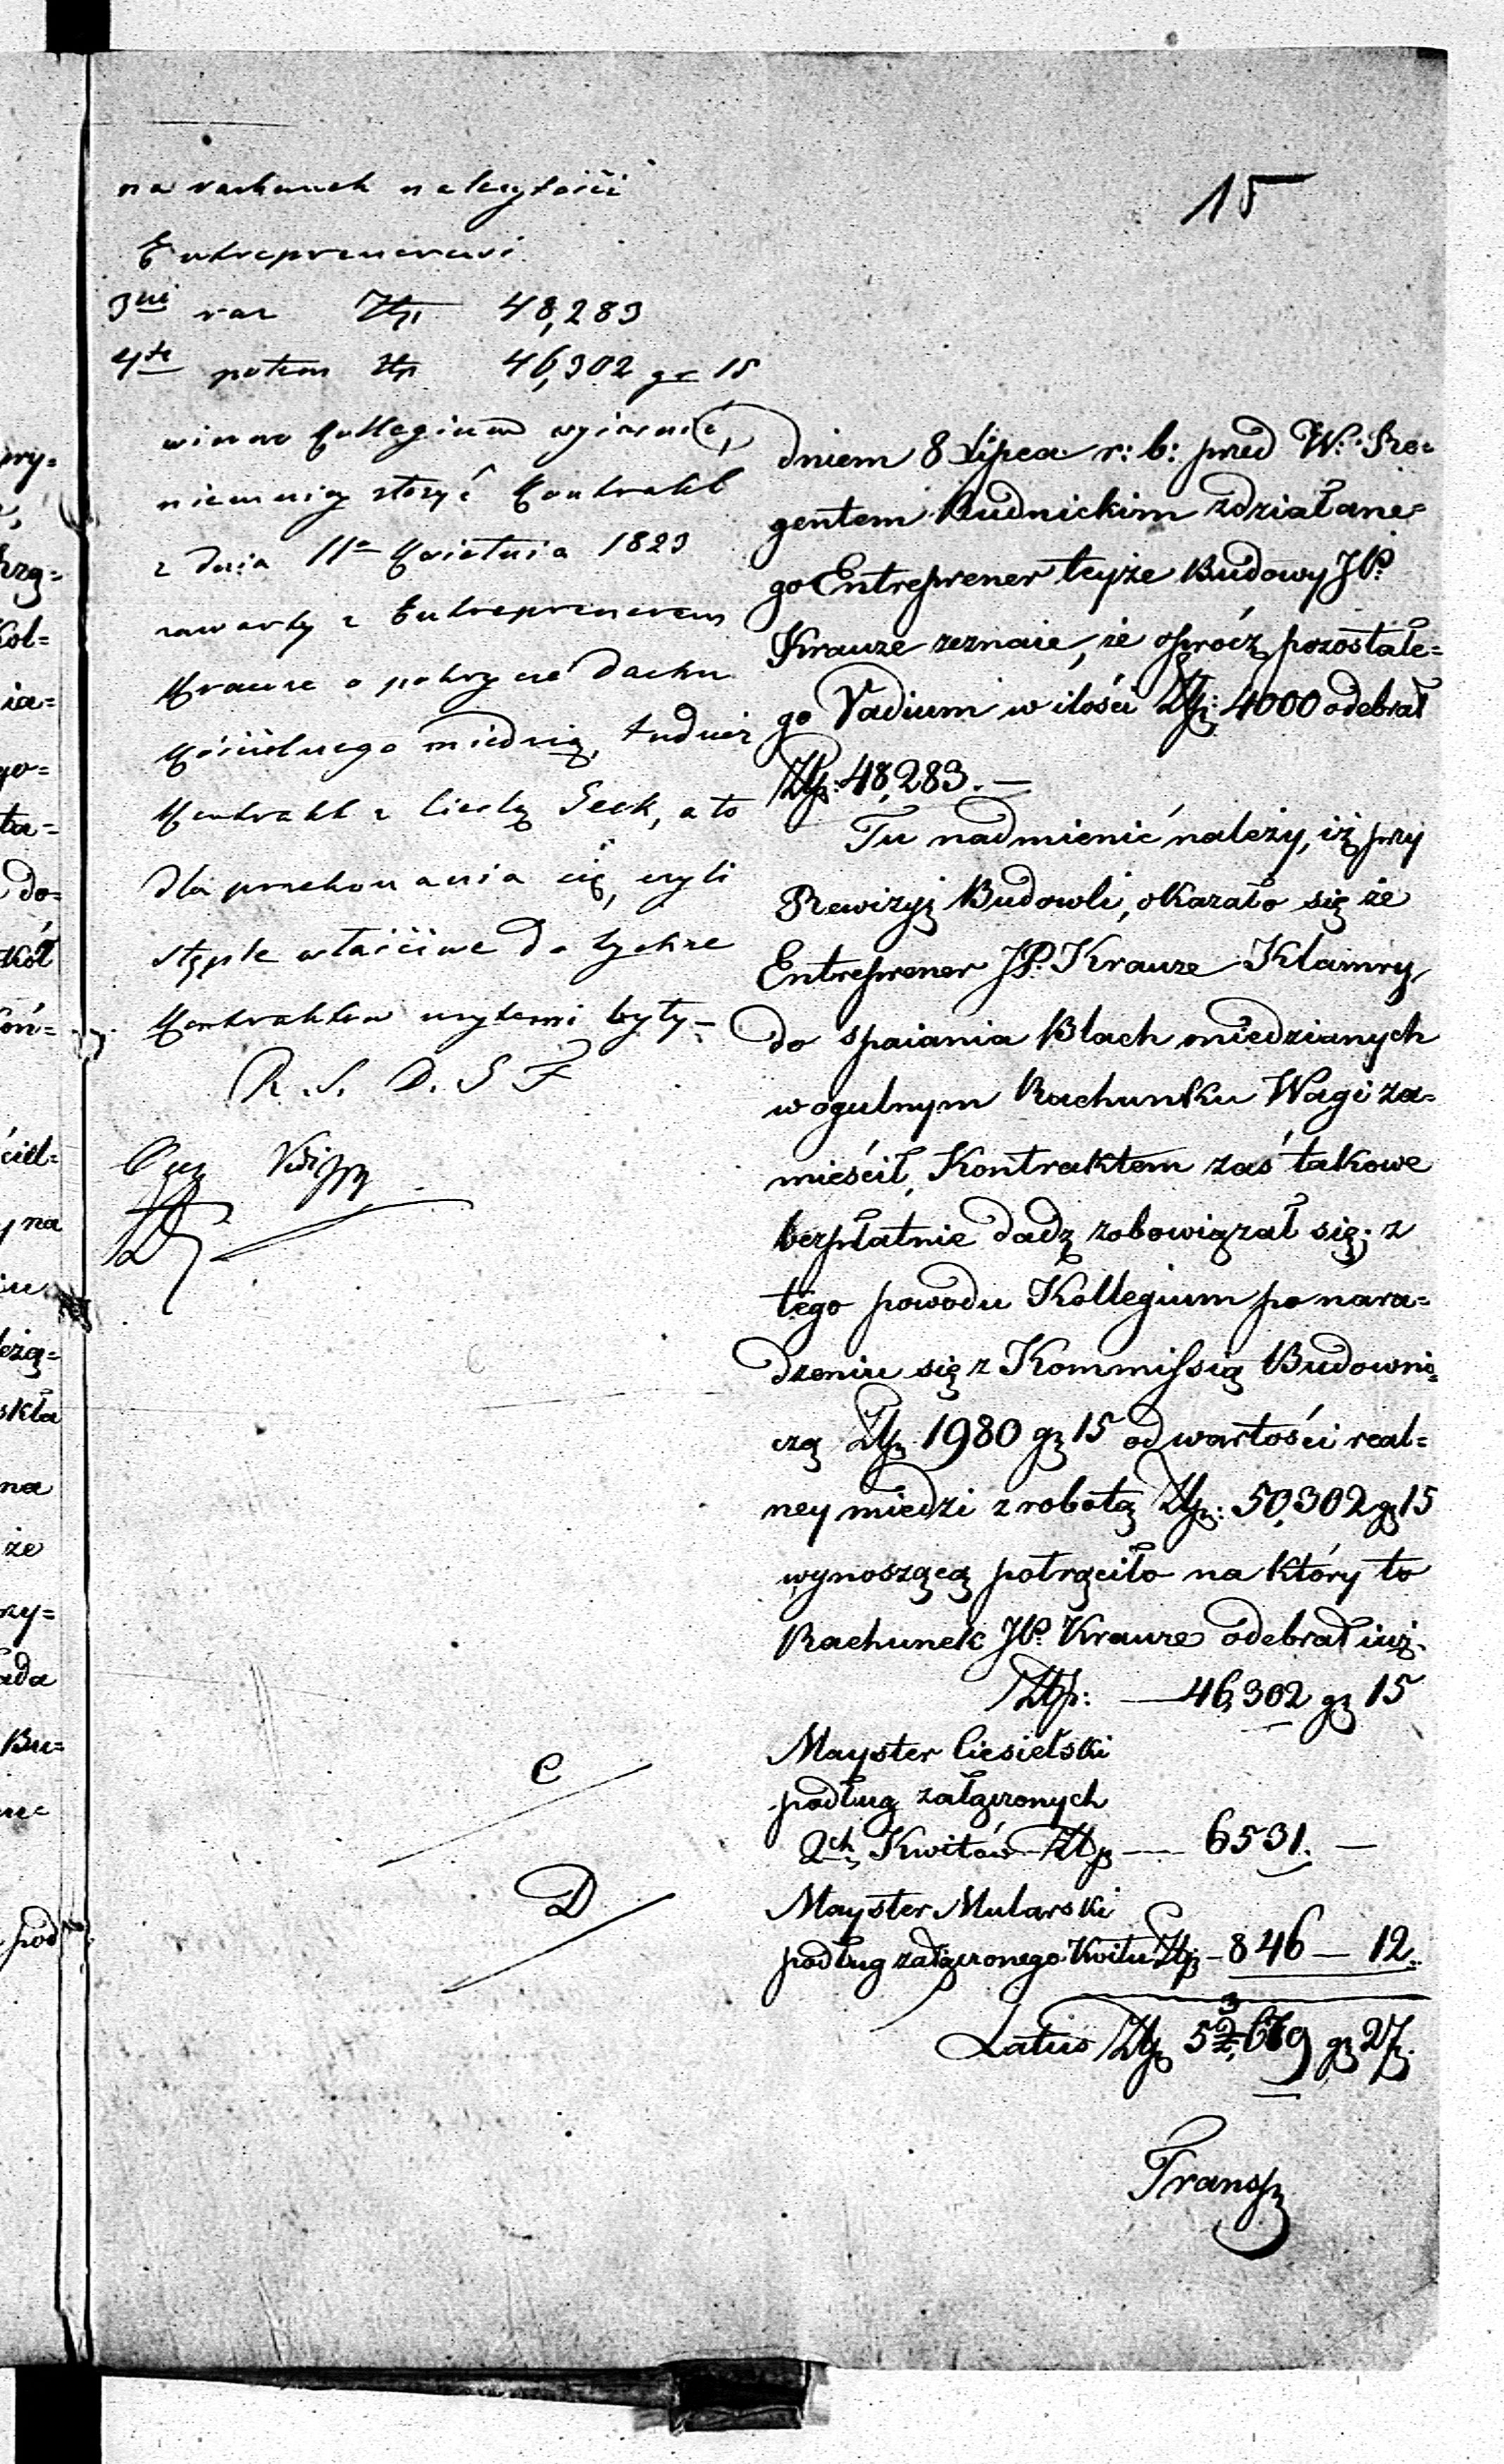 15
na rachunek należytości
Entreprenerowi
3ni raz Złp 48,283
4te potem Złp 46,302 gr 15
winno Kollegium wyiaśnić,
niemniey złożyć Kontrakt
z dnia 11o Kwietnia 1823
zawarty z Entreprenerem
Krauze o pokrycie dachu
Kościelnego miedzią, tudzież
Kontrakt z Cieślą Seek, a to
dla przekonania się, czyli
stęple właściwe do tychże
Kontraktów użytemi były.
R. S. D. S F
dniem 8 Lipca r: b: przed W. Re=
gentem Rudnickim zdziałane=
go Entreprener teyże Budowy JP.
Krauze zeznaie, że oprócz pozostałe=
go Vadium w ilości Złp: 4000 odebrał
Złp: 48,283. —
Tu nadmienić należy, iż przy
Rewizyi Budowli, okazało się że
Entreprener JP. Krauze Klamry
do spaiania Blach miedzianych
w ogulnym Rachunku Wagi za=
mieścił, Kontraktem zaś takowe
bezpłatnie dadź zobowiązał się; z
tego powodu Kollegium po nara=
dzeniu się z Kommissią Budowni=
czą Złp. 1980 gr 15 od wartości real=
ney miedzi z robotą Złp: 50,302 gr 15
wynoszącą potrąciło na który to
Rachunek JP. Krauze odebrał iuż.
Złp: — 46,302 gr 15
Mayster Ciesielski
podług załączonych
C
2ch Kwitów Złp — 6531. —
D
Mayster Mularski
podług załączonego Kwitu Złp — 846 — 12.
Latus Złp 53,679 gr 27.
Transp